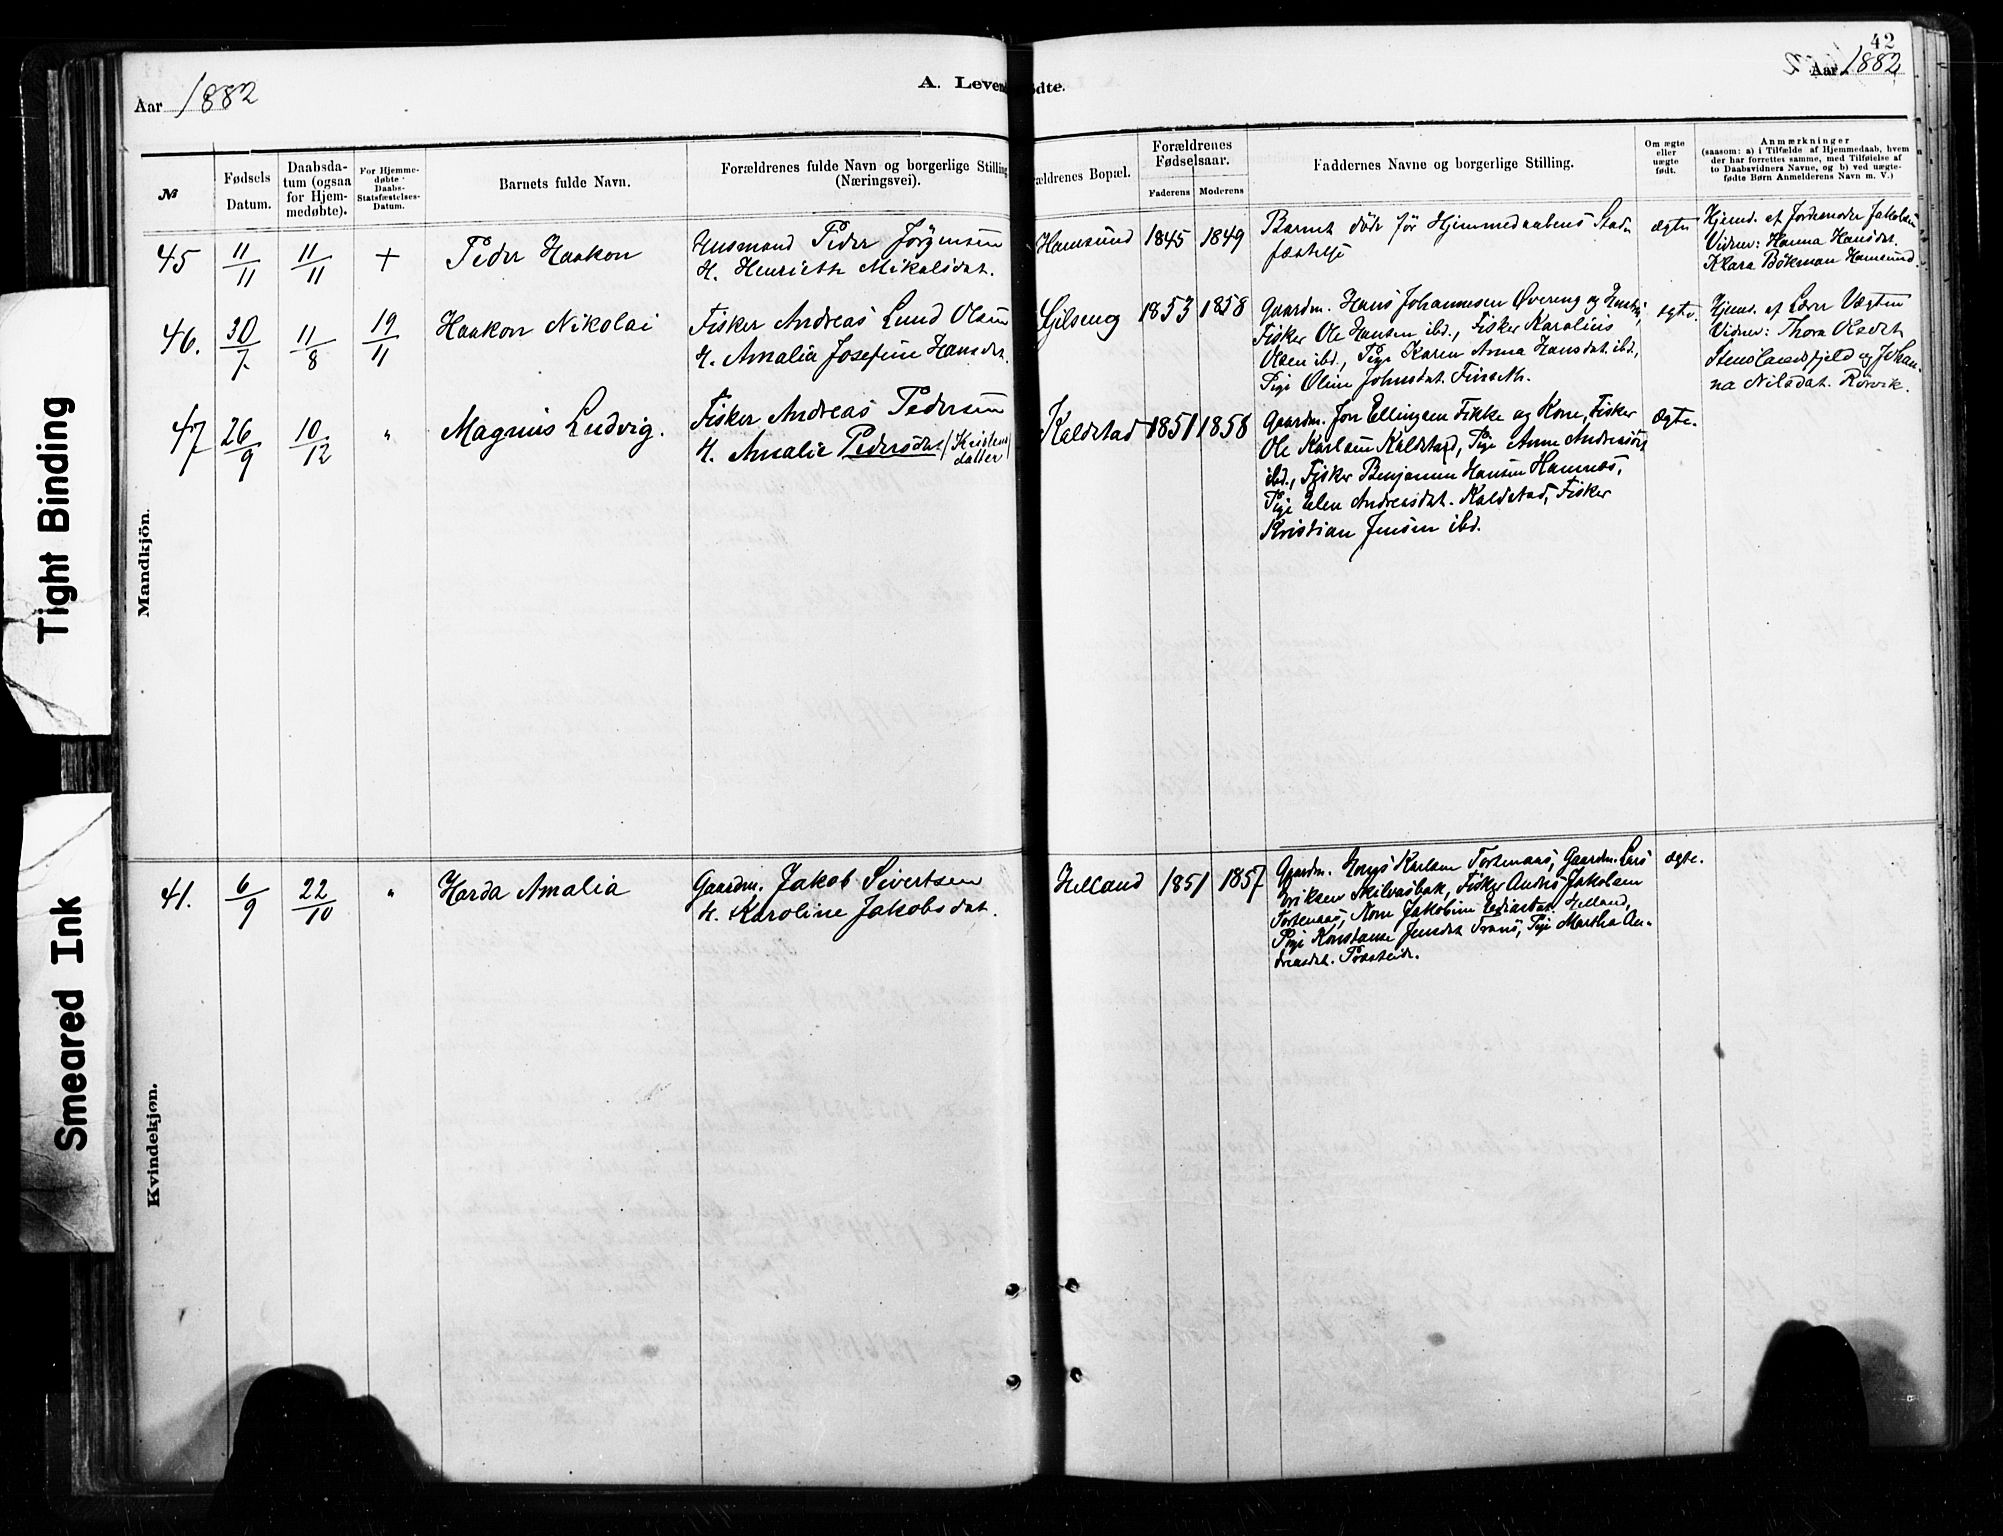 42
Aar 1882
A. Levendefødte.
Aar 1882
№
Fødsels Datum.
Daabsdatum (ogsaa for Hjemmedøbte).
For Hjemmedøbte Daabs-Statsfæstelses-Datum.
Barnets fulde Navn.
Forældrenes fulde Navn og borgerlige Stilling (Næringsvei).
ældrenes Bopæl.
Forældrenes Fødselsaar.
Faderens
Moderens
Faddernes Navne og borgerlige Stilling.
Om ægte eller uægte født.
Anmærkninger
(saasom: a) i Tilfælde af Hjemmedaab, hvem
der har forrettes samme, med Tilføielse af
to Daabsvidners Navne, og b) ved uægte-
fødte Børn Anmelderens Navn m. V.)
45 11/11 11/11 + Peder Haakon
Husmand Peder Jørgensen
H. Henriette Mikalsdat.
Hamsund 1845 1849
Barnet døde før Hjemmedaabens Stad-
fæstelse
ægte
Hjemd. af Jordemoder Jakobsen
Vidner: Hanna Hansdat.
Klara Bökman Hamsund.
46. 30/7. 11/8 19/11 Haakon Nikolai
Fisker Andreas Lund Olsen
H. Amalia Josefine Hansdat.
Gilseng 1853 1858
Gaardm. Hans Johannesen Øvereng og Hustru,
Fisker Ole Hansen ibd., Fisker Karolius
Olsen ibd., Pige Karen Anna Hansdat. ibd.,
Pige Oline Johnsdat. Finseth.
ægte.
Hjemd. af Lærer Vegten
Vidner: Thora Olsdat.
Stenslandsfjeld og Johan-
na Nilsdat. Rörvik.
47 26/9 10/12 " Magnus Ludvig.
Fisker Andreas Pedersen
H. Amalie Pedersdat. (Kristens
datter)
Kaldstad 1851 1858
Gaardm. Jon Ellingsen Fikke og Kone, Fisker
Ole Karlsen Kaldstad, Pige Anne Andreasdat.
ibd., Fisker Benjamin Hansen Hamnæs,
Pige Elen Andreasdat. Kaldstad, Fisker
Kristian Jensen ibd.
Ægte.
Mandkjön.
41. 6/9 22/10 " Harda Amalia
Gaardm. Jakob Sivertsen
H. Karoline Jakobsdat.
Helland 1851 1857
Gaardm. Karlsen Tortenaas, Gaardm. Lars
Eriksen Skilvasbak, Fisker Andreas Jakobsen
Tortenaas, Kone Jakobine Helland,
Pige Konstanse Jensdat. Tranö, Pige Martha An-
dreasdat.
ægte.
Kvindekjøn.
Tight Binding
Smeared Ink